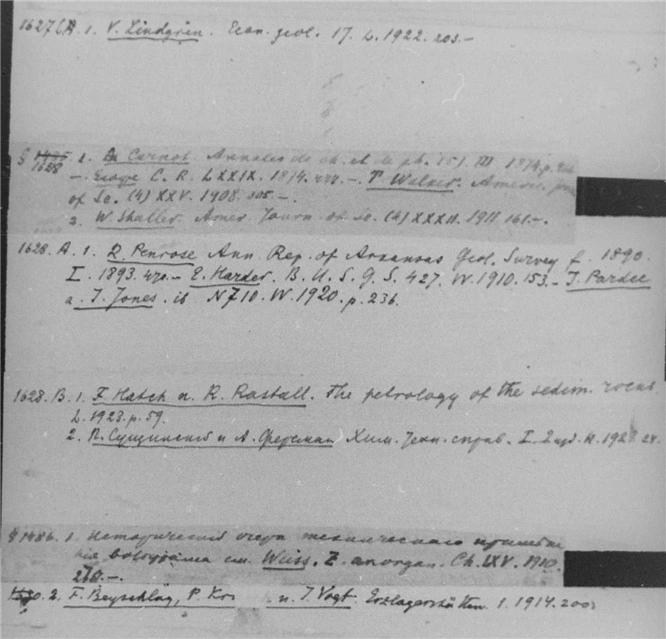 1627 A. 1. V. Lindgren. Econ. geol. 17. L. 1922. 203.—
§ 1628 1. A. Carnot. Annales de ch. et de ph. (5). III. 1874. p.
—. C. R. LXXIX. 1874. 477.—. T. Walker. Americ. Journ.
of Sc. (4) XXV. 1908. 305.—.
2. W. Shaller. Amer. Journ. of Sc. (4) XXXII. 1911. 161.—.
1628. A. 1. R. Penrose. Ann. Rep. of Arkansas Geol. Survey f. 1890.
I. 1893. 470.— E. Harder. B. U. S. G. S. 427. W. 1910. 153.— J. Pardee
a. J. Jones. ib N 710. W. 1920. p. 236.
1628. B. 1. F. Hatch n. R. Rastall. The petrology of the sedim. rocks.
L. 1923. p. 59.
2. П. Сущинский и А. Ферсман Хим. Техн. справ. I. 2 изд. Л. 1928.
§ 1486. 1. Исторический очерк технического примене
ния вольфрама см. Weiss. Z. anorgan. Ch. LXV. 1910.
2. F. Beyschlag, P. n. J. Vogt. Erzlagerstätten. 1. 1914.